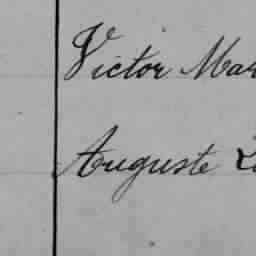 Victor Mar
Auguste